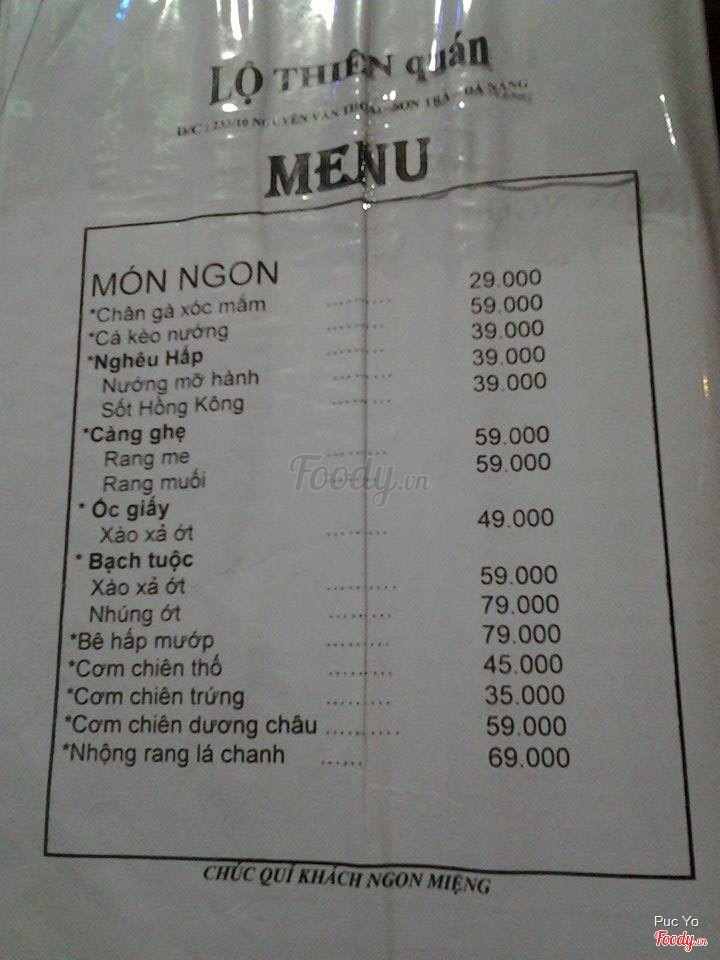 LỘ THIÊN quán
Đ/C : 233/10 NGUYỄN VĂN THOẠI - SƠN TRÀ - ĐÀ NẴNG
MENU
MÓN NGON
*Chân gà xóc mắm .......... 29.000
*Cá kèo nướng 59.000
*Nghêu Hấp .......... 39.000
Nướng mỡ hành .......... 39.000
Sốt Hồng Kông .......... 39.000
*Càng ghẹ
Rang me .......... 59.000
Rang muối .......... 59.000
* Ốc giấy
Xào xả ớt .......... 49.000
* Bạch tuộc
Xào xả ớt .......... 59.000
Nhúng ớt .......... 79.000
*Bê hấp mướp .......... 79.000
*Cơm chiên thố .......... 45.000
*Cơm chiên trứng .......... 35.000
*Cơm chiên dương châu ........... 59.000
*Nhộng rang lá chanh ...... 69.000
CHÚC QUÍ KHÁCH NGON MIỆNG
Foody.vn
Puc Yo
Foody.vn